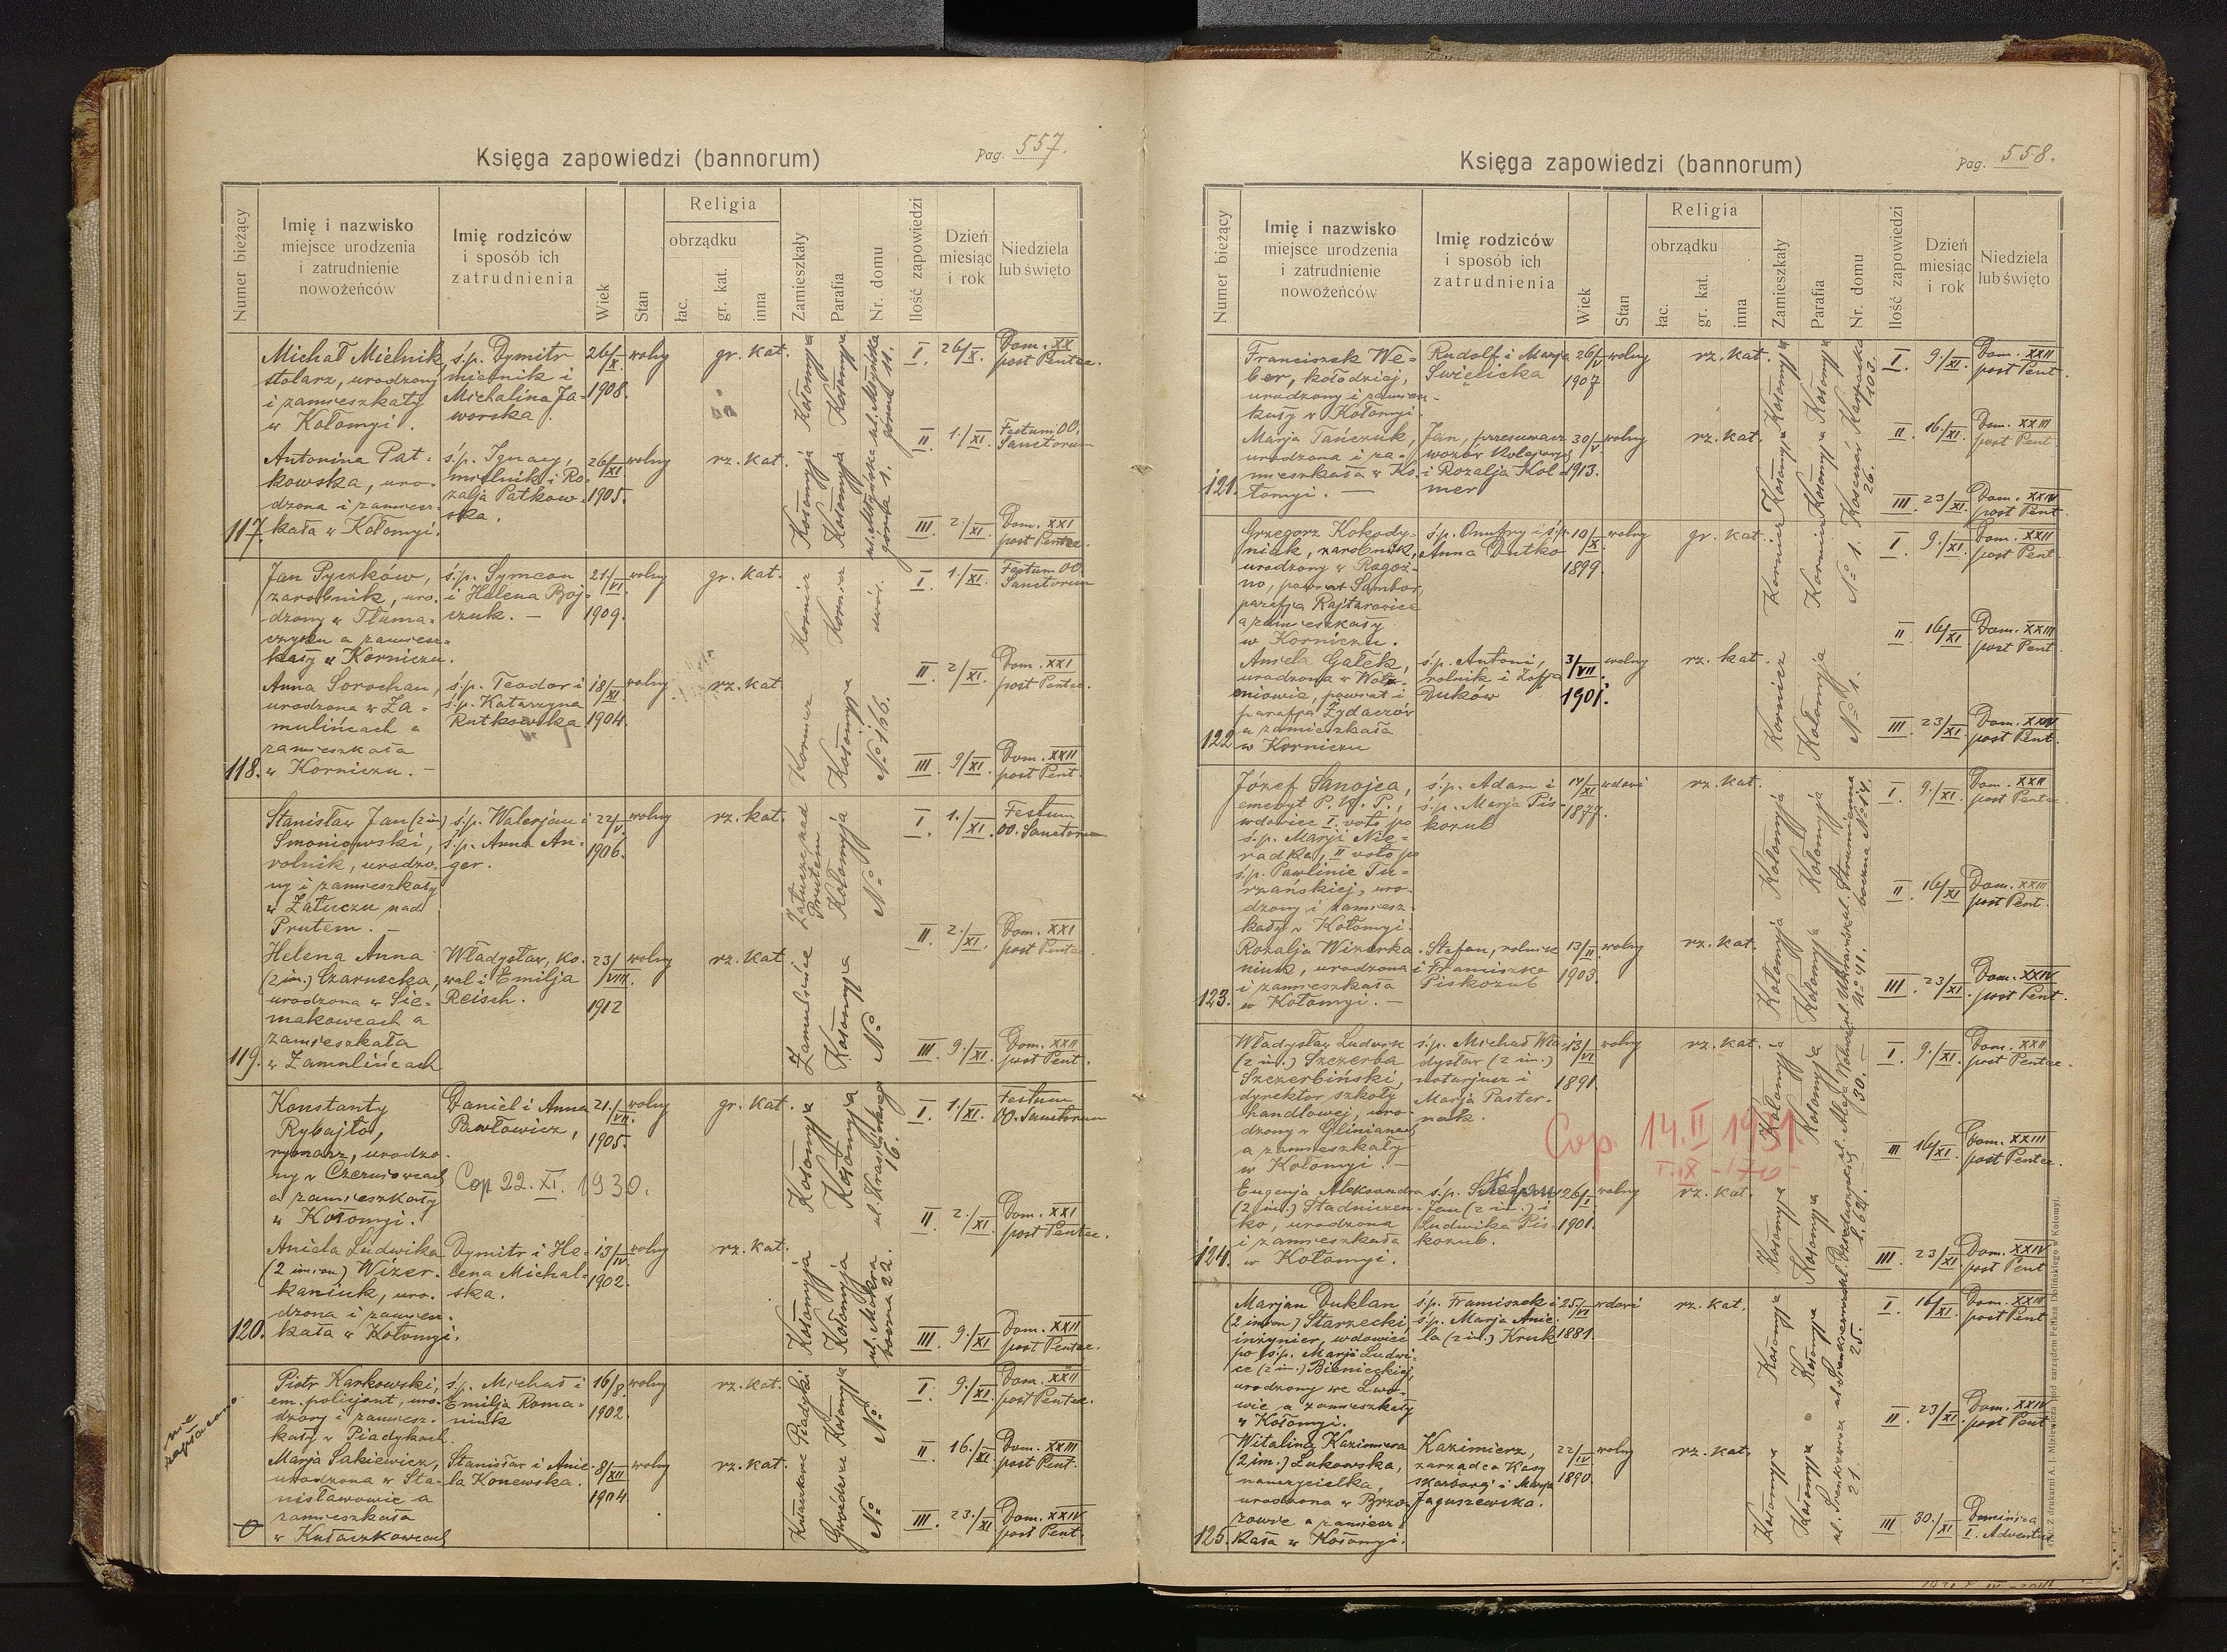 Księga zapowiedzi (bannorum)
Pag. 557.
Numer bieżący
Imię i nazwisko
miejsce urodzenia
i zatrudnienie
nowożeńców
Imię rodziców
i sposób ich
zatrudnienia
Wiek
Stan
Religia
obrządku
łac.
gr. kat.
inna
Zamieszkały
Parafia
Nr. domu
Ilość zapowiedzi
Dzień
miesiąc
i rok
Niedziela
lub święto
117.
Michał Mielnik,
stolarz, urodzony
i zamieszkały
w Kołomyi.
ś.p. Dymitr
mielnik i
Michalina Ja-
worska.
26/X. 1908.
wolny
gr. kat.
Kołomyja
Kołomyja
ul. Młyńska
górna 11.
I. 26/X. Dom. XX
post Pentec.
II. 1./XI. Festum OO.
Sanctorum
Antonina Pat-
kowska, uro-
dzona i zamiesz-
kała w Kołomyi.
ś.p. Ignacy,
mielnik i Ro-
zalja Patkow-
ska.
26/XI 1905.
wolny
rz. kat.
Kołomyja
Kołomyja
ul. Młyńska
górna 1.
III 2./XI. Dom. XXI
post Pentec.
118.
Jan Pyczków,
zarobnik, uro-
dzony w Tłuma-
czyku a zamiesz-
kały w Korniczu.
ś.p. Symeon
i Helena Boj-
czuk. —
21./VI. 1909.
wolny
gr. kat.
Kornicz
Kornicz
I 1/XI. Festum OO.
Sanctorum
II. 2/XI. Dom. XXI
post Pentec.
Anna Sorochan,
urodzona w Za-
mulińcach a
zamieszkała
w Korniczu. —
ś.p. Teodor i
ś.p. Katarzyna
Rutkowska
18/XI 1904.
wolny
rz. kat.
Kornicz
Kołomyja
No 166.
III. 9/XI. Dom. XXII
post Pent.
119.
Stanisław Jan (2 im)
Smoniowski,
rolnik, urodzo-
ny i zamieszkały
w Załuczu nad
Prutem. —
ś.p. Walerjan i
ś.p. Anna An-
ger.
22/V. 1906.
wolny
rz. kat.
Załucze nad
Prutem
Kołomyja
No
I 1./XI. Festum
OO. Sanctorum
II. 2./XI. Dom. XXI
post Pentec.
Helena Anna
(2 im.) Czarnecka,
urodzona w Sie-
makowcach a
zamieszkała
w Zamulińcach
Władysław, ko-
wal i Emilja
Reisch.
23/VIII. 1912
wolny
rz. kat
Zamulińce
Kołomyja
No
III 9./XI. Dom. XXII
post Pent.
120.
Konstanty
Rybajło,
rymarz, urodzo-
ny w Czerniowcach
a zamieszkały
w Kołomyi.
Daniel i Anna
Pawłowicz,
Cop 22. XI. 1930.
21./VII. 1905.
wolny
gr. kat.
Kołomyja
Kołomyja
16.
I. 1./XI. Festum
OO. Sanctorum
II 2./XI. Dom. XXI
post Pentec.
Aniela Ludwika
(2 imion) Wizer-
kaniuk, uro-
dzona i zamiesz-
kała w Kołomyi.
Dymitr i He-
lena Michal-
ska.
13/IV. 1902.
wolny
rz. kat.
Kołomyja
Kołomyja
ul. Mokra
boczna 22.
III. 9./XI. Dom. XXII
post Pentec.
nie
zapłacono
0
Piotr Karkowski,
em. policjant, uro-
dzony i zamiesz-
kały w Piadykach.
ś.p. Michał i
Emilja Roma-
niuk
16/8. 1902.
wolny
rz. kat.
Piadyki
Kołomyja
No
I. 9./XI. Dom. XXII
post Pentec.
II 16./XI. Dom. XXIII
post Pent.
Marja Sakiewicz,
urodzona w Sta-
nisławowie a
zamieszkała
w Kułaczkowcach
Stanisław i Anie-
la Konewska.
8/XII 1904.
wolny
rz. kat.
Kułaczkowce
Gwoździec
No
III. 23./XI Dom. XXIV
post Pent.
Księga zapowiedzi (bannorum)
Pag. 558.
Numer bieżący
Imię i nazwisko
miejsce urodzenia
i zatrudnienie
nowożeńców
Imię rodziców
i sposób ich
zatrudnienia
Wiek
Stan
Religia
obrządku
łac.
gr. kat.
inna
Zamieszkały
Parafia
Nr. domu
Ilość zapowiedzi
Dzień
miesiąc
i rok
Niedziela
lub święto
121.
Franciszek We-
ber, kołodziej,
urodzony i zamiesz-
kały w Kołomyi.
Rudolf i Marja
Święcicka
26/V 1907
wolny
rz. kat.
Kołomyja
Kołomyja
Karpacka
103.
I 9./XI. Dom. XXII
post Pent.
II 16./XI. Dom. XXIII
post Pent.
Marja Tańczuk,
urodzona i za-
mieszkała w Ko-
łomyi. —
Jan, przesuwacz
wozów kolejowych
i Rozalja Kol-
mer
30/V. 1913.
wolny
rz. kat.
Kołomyja
Kołomyja
26.
III 23/XI Dom. XXIV
post Pent.
122
Grzegorz Kokody-
niak, zarobnik,
urodzony w Ragoź-
no, powiat Sambor,
parafja Rajtarowice
a zamieszkały
w Korniczu.
ś.p. Onufry i ś.p.
Anna Dutko
10/X. 1899.
wolny
gr. kat.
Kornicz
Kornicz
No 1.
I 9./XI. Dom. XXII
post Pent.
II 16/XI Dom. XXIII
post Pent.
Aniela Gałek,
powiat i
parafja Żydaczów
a zamieszkała
w Korniczu
ś.p. Antoni,
rolnik i Zofja
Duków
3/VII. 1901.
wolny
rz. kat.
Kornicz
Kołomyja
No 1.
III 23/XI Dom. XXIV
post Pent.
123.
Józef Sanojca,
emeryt P. K. P.,
wdowiec I. voto po
ś.p. Marji Nie-
radka, II voto po
ś.p. Pawlinie Tu-
rzańskiej, uro-
dzony i zamiesz-
kały w Kołomyi.
ś.p. Adam i
ś.p. Marja Pis-
kozub
14/XI 1877.
rz. kat.
Kołomyja
Kołomyja
ul. Strumienna
boczna No 14.
I. 9./XI. Dom. XXII
post Pentec.
II 16/XI Dom. XXIII
post Pent.
Rozalja Wizerka-
niuk, urodzona
i zamieszkała
w Kołomyi. —
Stefan, rolnik
i Franciszka
Piskozub
13/II 1903.
wolny
rz. kat.
Kołomyja
Kołomyja
No 41.
III 23/XI. Dom. XXIV
post Pent.
124.
Władysław Ludwik
(2 im.) Szczerba
Szczerbiński,
dyrektor szkoły
handlowej, uro-
dzony w Glinianach
a zamieszkały
w Kołomyi. —
ś.p. Michał Wła-
dysław (2 im.)
notarjusz i
Marja Paster-
nak.
13/VI 1891.
wolny
rz. kat.
Cop. 14. II 1931
T. IX - 170 -
Kołomyja
Kołomyja
30. —
I. 9./XI. Dom. XXII
post Pentec.
III 16/XI. Dom. XXIII
post Pentec.
Eugenja Aleksandra
(2 im.) Stadniczen-
ko, urodzona
i zamieszkała
w Kołomyi.
ś.p. Stefan
Jan (2 im.) i
Ludwika Pis-
kozub.
26/I 1901.
wolny
rz. kat.
Kołomyja
Kołomyja
l. 62.
III. 23/XI Dom. XXIV
post Pent
125.
Marjan Duklan
(2 imion) Starzecki
inżynier, wdowiec
po ś.p. Marji Ludwi-
ce (2 im.) Bienieckiej,
urodzony we Lwo-
wie a zamieszkały
w Kołomyi.
ś.p. Franciszek i
ś.p. Marja Anie-
la (2 im.) Kruk
25/VI 1881.
rz. kat.
Kołomyja
Kołomyja
25.
I. 16/XI. Dom. XXIII
post Pent
II 23/XI. Dom. XXIV
post Pent
Witalina Kazimiera
(2 im.) Łukowska,
nauczycielka,
urodzona w Brzo-
zowie a zamiesz-
kała w Kołomyi.
Kazimierz,
zarządca Kasy
skarbowej i Marja
Jaguszewska.
22/IV 1890.
wolny
rz. kat.
Kołomyja
Kołomyja
ul. Sienkiewicza
21.
III 30./XI Dominica
I. Adventus
Z drukarni A. J. Miziewicza pod zarządem Feliksa Dolińskiego w Kołomyi.